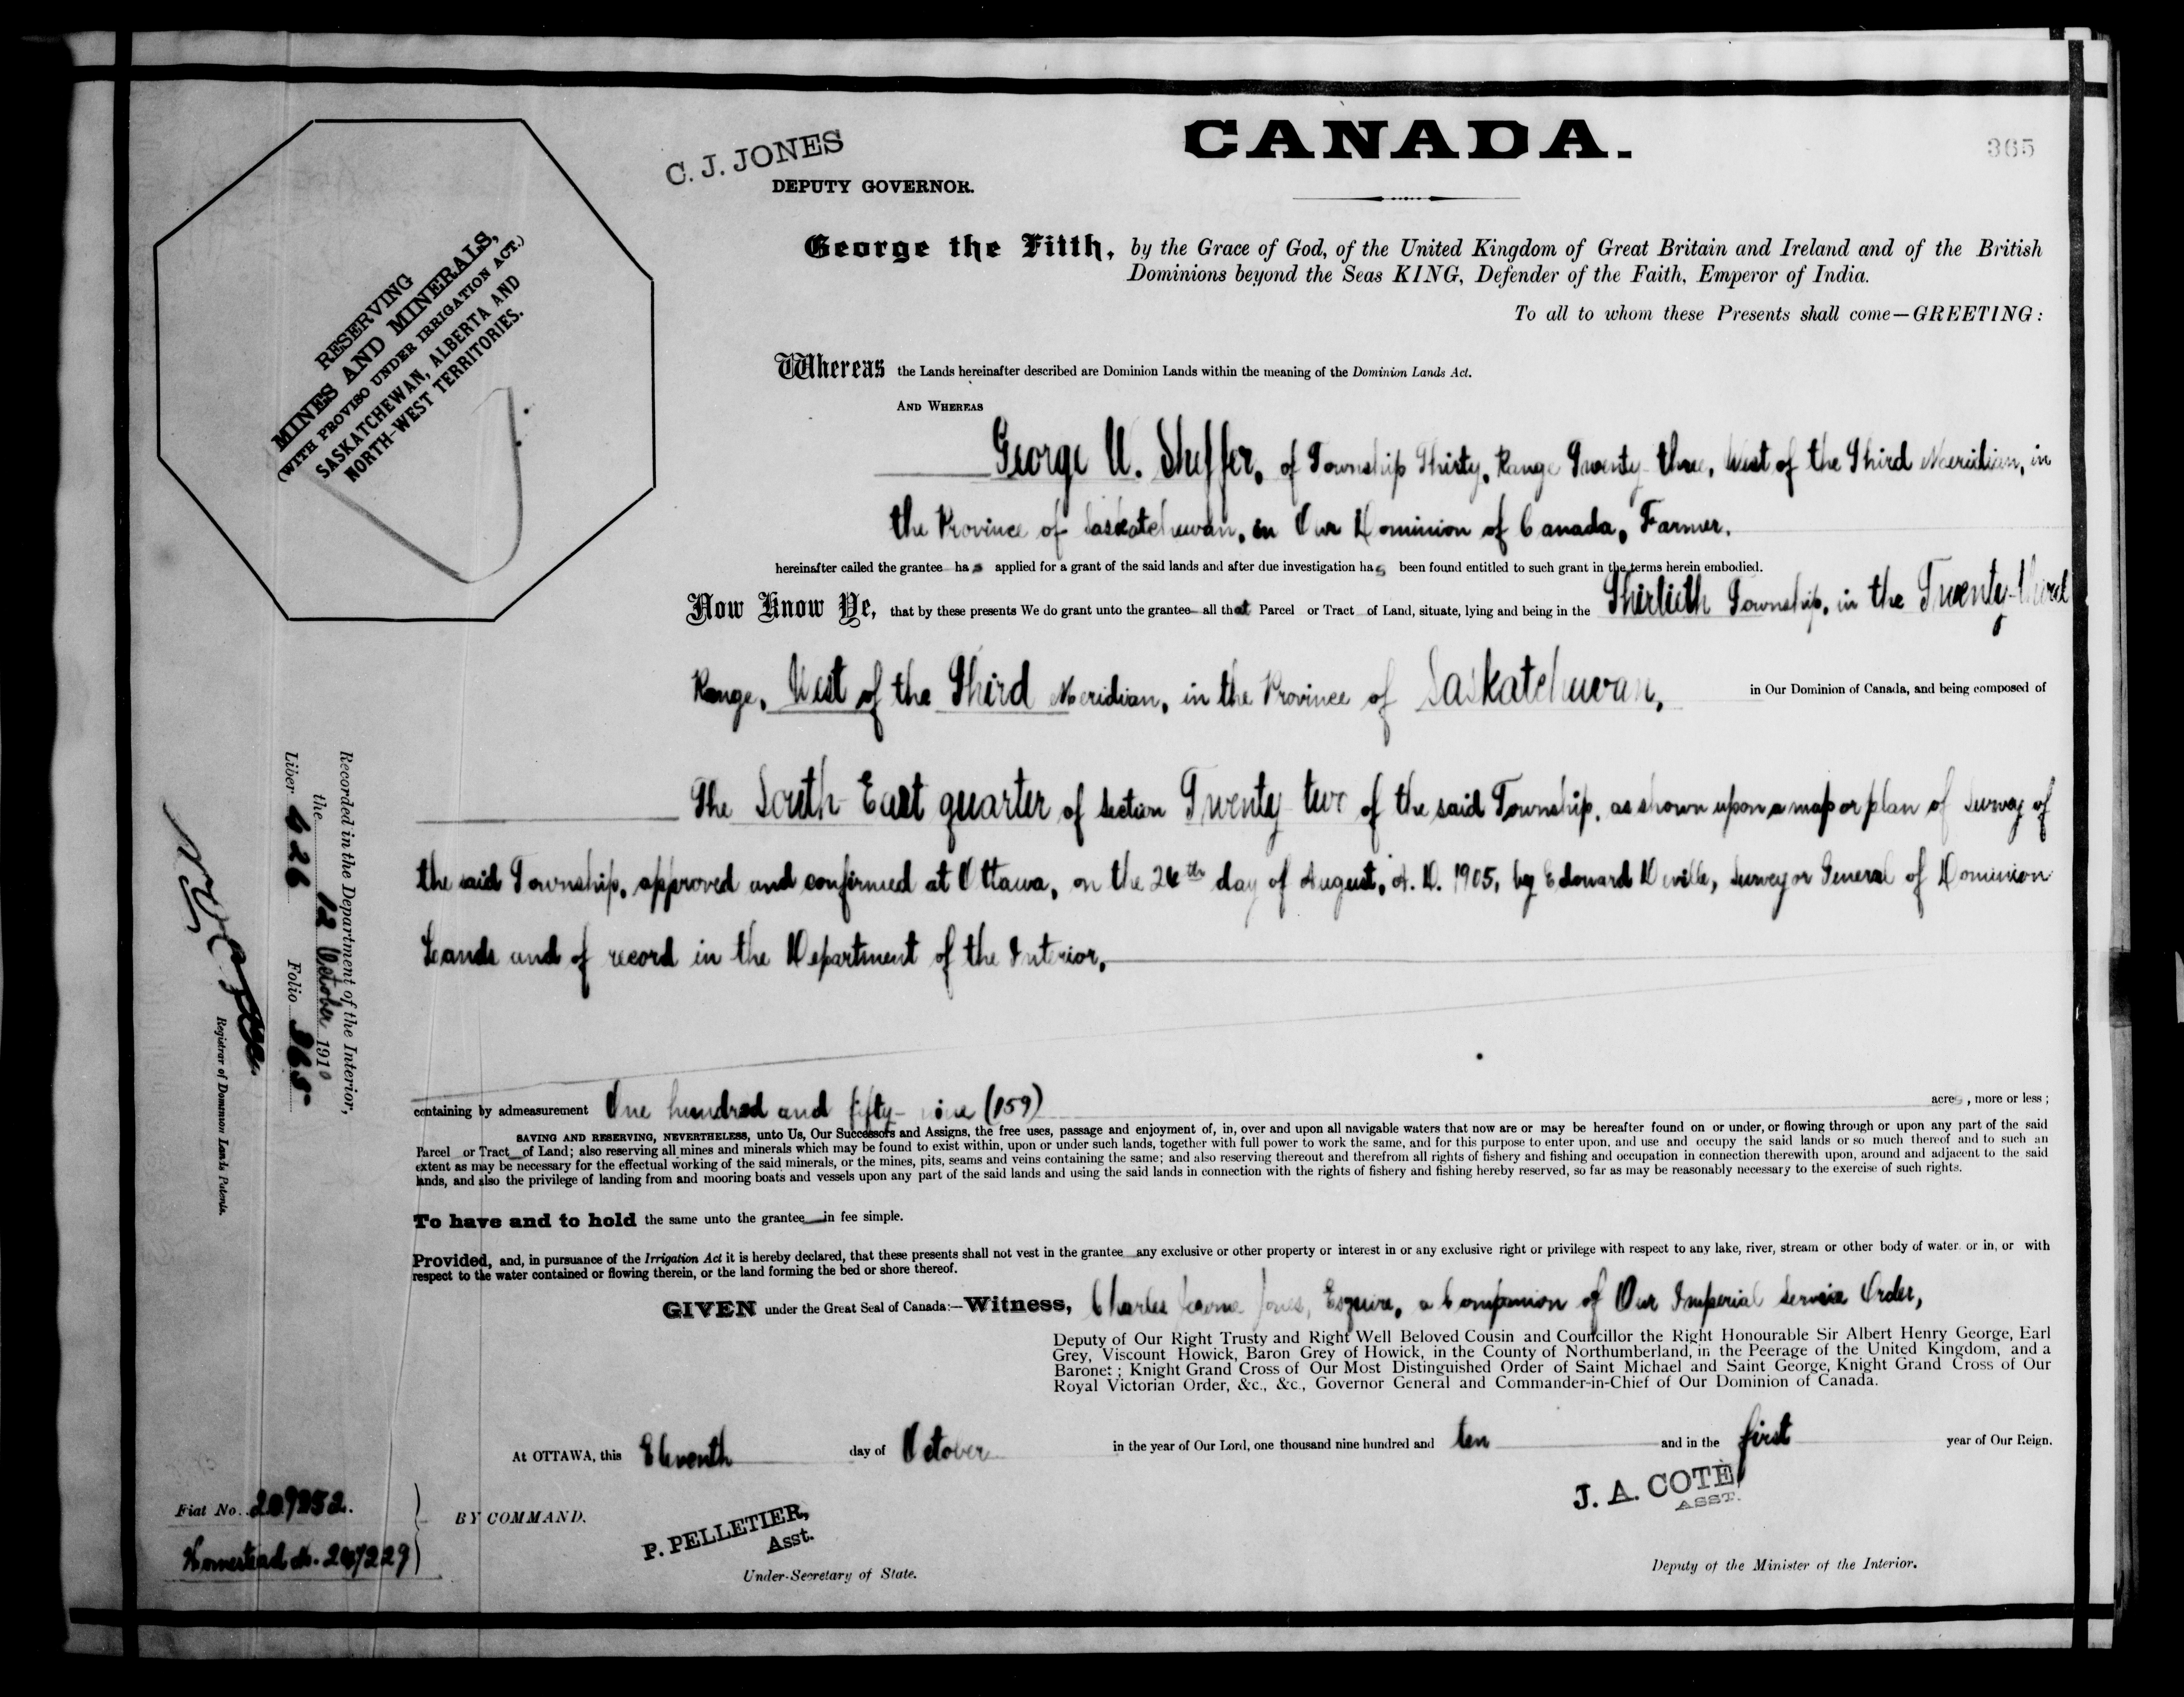 CANADA.
365
C. J. JONES
DEPUTY GOVERNOR.
RESERVING
MINES AND MINERALS,
(WITH PROVISO UNDER IRRIGATION ACT.)
SASKATCHEWAN, ALBERTA AND
NORTH-WEST TERRITORIES.
George the Fifth, by the Grace of God, of the United Kingdom of Great Britain and Ireland and of the British
Dominions beyond the Seas KING, Defender of the Faith, Emperor of India.
To all to whom these Presents shall come—GREETING:
Whereas the Lands hereinafter described are Dominion Lands within the meaning of the Dominion Lands Act.
AND WHEREAS
George U. Sheffer, of Township Thirty, Range Twenty-three, West of the Third Meridian, in
the Province of Saskatchewan, in Our Dominion of Canada, Farmer,
hereinafter called the grantee has applied for a grant of the said lands and after due investigation has been found entitled to such grant in the terms herein embodied.
Now Know Ye, that by these presents We do grant unto the grantee all that Parcel or Tract of Land, situate, lying and being in the Thirtieth Township, in the Twenty-third
Range, West of the Third Meridian, in the Province of Saskatchewan, in Our Dominion of Canada, and being composed of
The South East quarter of section Twenty two of the said Township, as shown upon a map or plan of survey of
the said Township, approved and confirmed at Ottawa, on the 26th day of August, A. D. 1905, by Edouard Deville, Surveyor General of Dominion
Lands and of record in the Department of the Interior,
containing by admeasurement One hundred and fifty-nine (159) acres, more or less;
SAVING AND RESERVING, NEVERTHELESS, unto Us, Our Successors and Assigns, the free uses, passage and enjoyment of, in, over and upon all navigable waters that now are or may be hereafter found on or under, or flowing through or upon any part of the said
Parcel or Tract of Land; also reserving all mines and minerals which may be found to exist within, upon or under such lands, together with full power to work the same, and for this purpose to enter upon, and use and occupy the said lands or so much thereof and to such an
extent as may be necessary for the effectual working of the said minerals, or the mines, pits, seams and veins containing the same; and also reserving thereout and therefrom all rights of fishery and fishing and occupation in connection therewith upon, around and adjacent to the said
lands, and also the privilege of landing from and mooring boats and vessels upon any part of the said lands and using the said lands in connection with the rights of fishery and fishing hereby reserved, so far as may be reasonably necessary to the exercise of such rights.
To have and to hold the same unto the grantee in fee simple.
Provided, and, in pursuance of the Irrigation Act it is hereby declared, that these presents shall not vest in the grantee any exclusive or other property or interest in or any exclusive right or privilege with respect to any lake, river, stream or other body of water, or in, or with
respect to the water contained or flowing therein, or the land forming the bed or shore thereof.
GIVEN under the Great Seal of Canada:—Witness, Charles Jones, Esquire, a Companion of Our Imperial Service Order,
Deputy of Our Right Trusty and Right Well Beloved Cousin and Councillor the Right Honourable Sir Albert Henry George, Earl
Grey, Viscount Howick, Baron Grey of Howick, in the County of Northumberland, in the Peerage of the United Kingdom, and a
Baronet; Knight Grand Cross of Our Most Distinguished Order of Saint Michael and Saint George, Knight Grand Cross of Our
Royal Victorian Order, &c., &c., Governor General and Commander-in-Chief of Our Dominion of Canada.
At OTTAWA, this Eleventh day of October in the year of Our Lord, one thousand nine hundred and ten and in the first year of Our Reign.
BY COMMAND.
P. PELLETIER,
Asst.
Under-Secretary of State.
J. A. COTÉ
ASST.
Deputy of the Minister of the Interior.
Fiat No. 207252.
Homestead No. 247229
Recorded in the Department of the Interior,
the 12 October 1910
Liber 426 Folio 365
Registrar of Dominion Lands Patents.